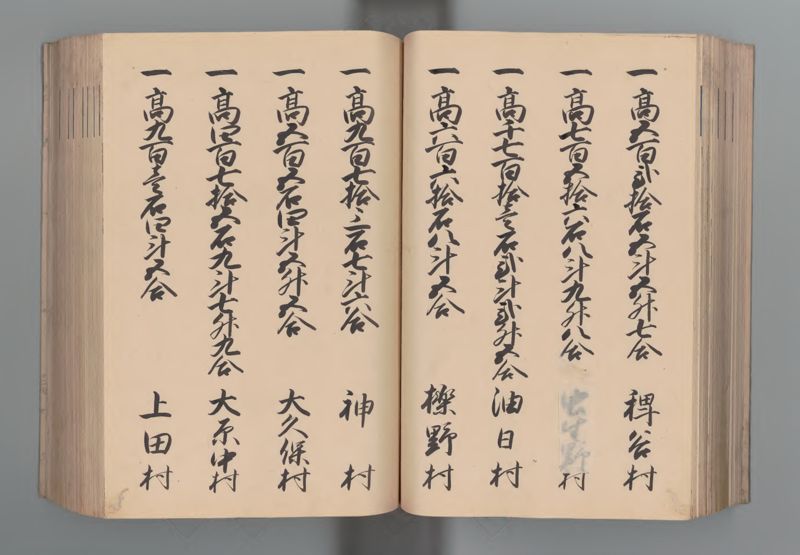 一 高五百弐拾石五斗五升七合 稗谷村
一 高七百五拾六石八斗九升八合 村
一 高千七百拾壱石弐斗弐升五合 油日村
一 高六百六拾石八斗五合 櫟野村
一 高九百七拾三石七斗六合 神村
一 高五百五石四斗五升五合 大久保村
一 高四百七拾五石九斗七升九合 大原中村
一 高九百壱石四斗五合 上田村